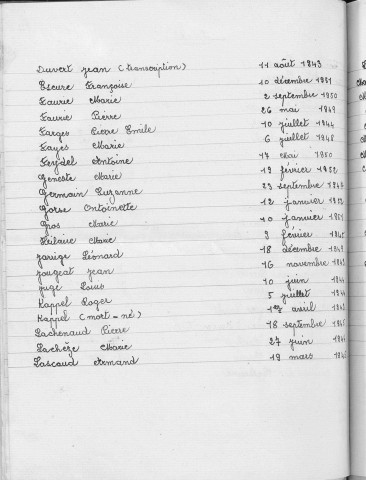 Duvert Jean (transcription) 11 août 1843
Escure Françoise 10 décembre 1851
Faurie Marie 2 septembre 1850
Faurie Pierre 26 mai 1849
Farges Pierre Emile 10 juillet 1844
Fayes Marie 6 juillet 1848
Feydel Antoine 17 mai 1850
Geneste Marie 19 février 1852
Germain Suzanne 23 septembre 1844
Gorse Antoinette 12 janvier 1852
Gros Marie 10 janvier 1851
Hilaire Marie 9 février
Jarrige Léonard 18 décembre 1849
Jougeat Jean 16 novembre
Juge Louis 10 juin
Kappel Roger 5 juillet
Kappel (mort-né) 1er avril
Lachenaud Pierre 18 septembre
Lachèze Marie 27 juin
Lascaud Armand 19 mars